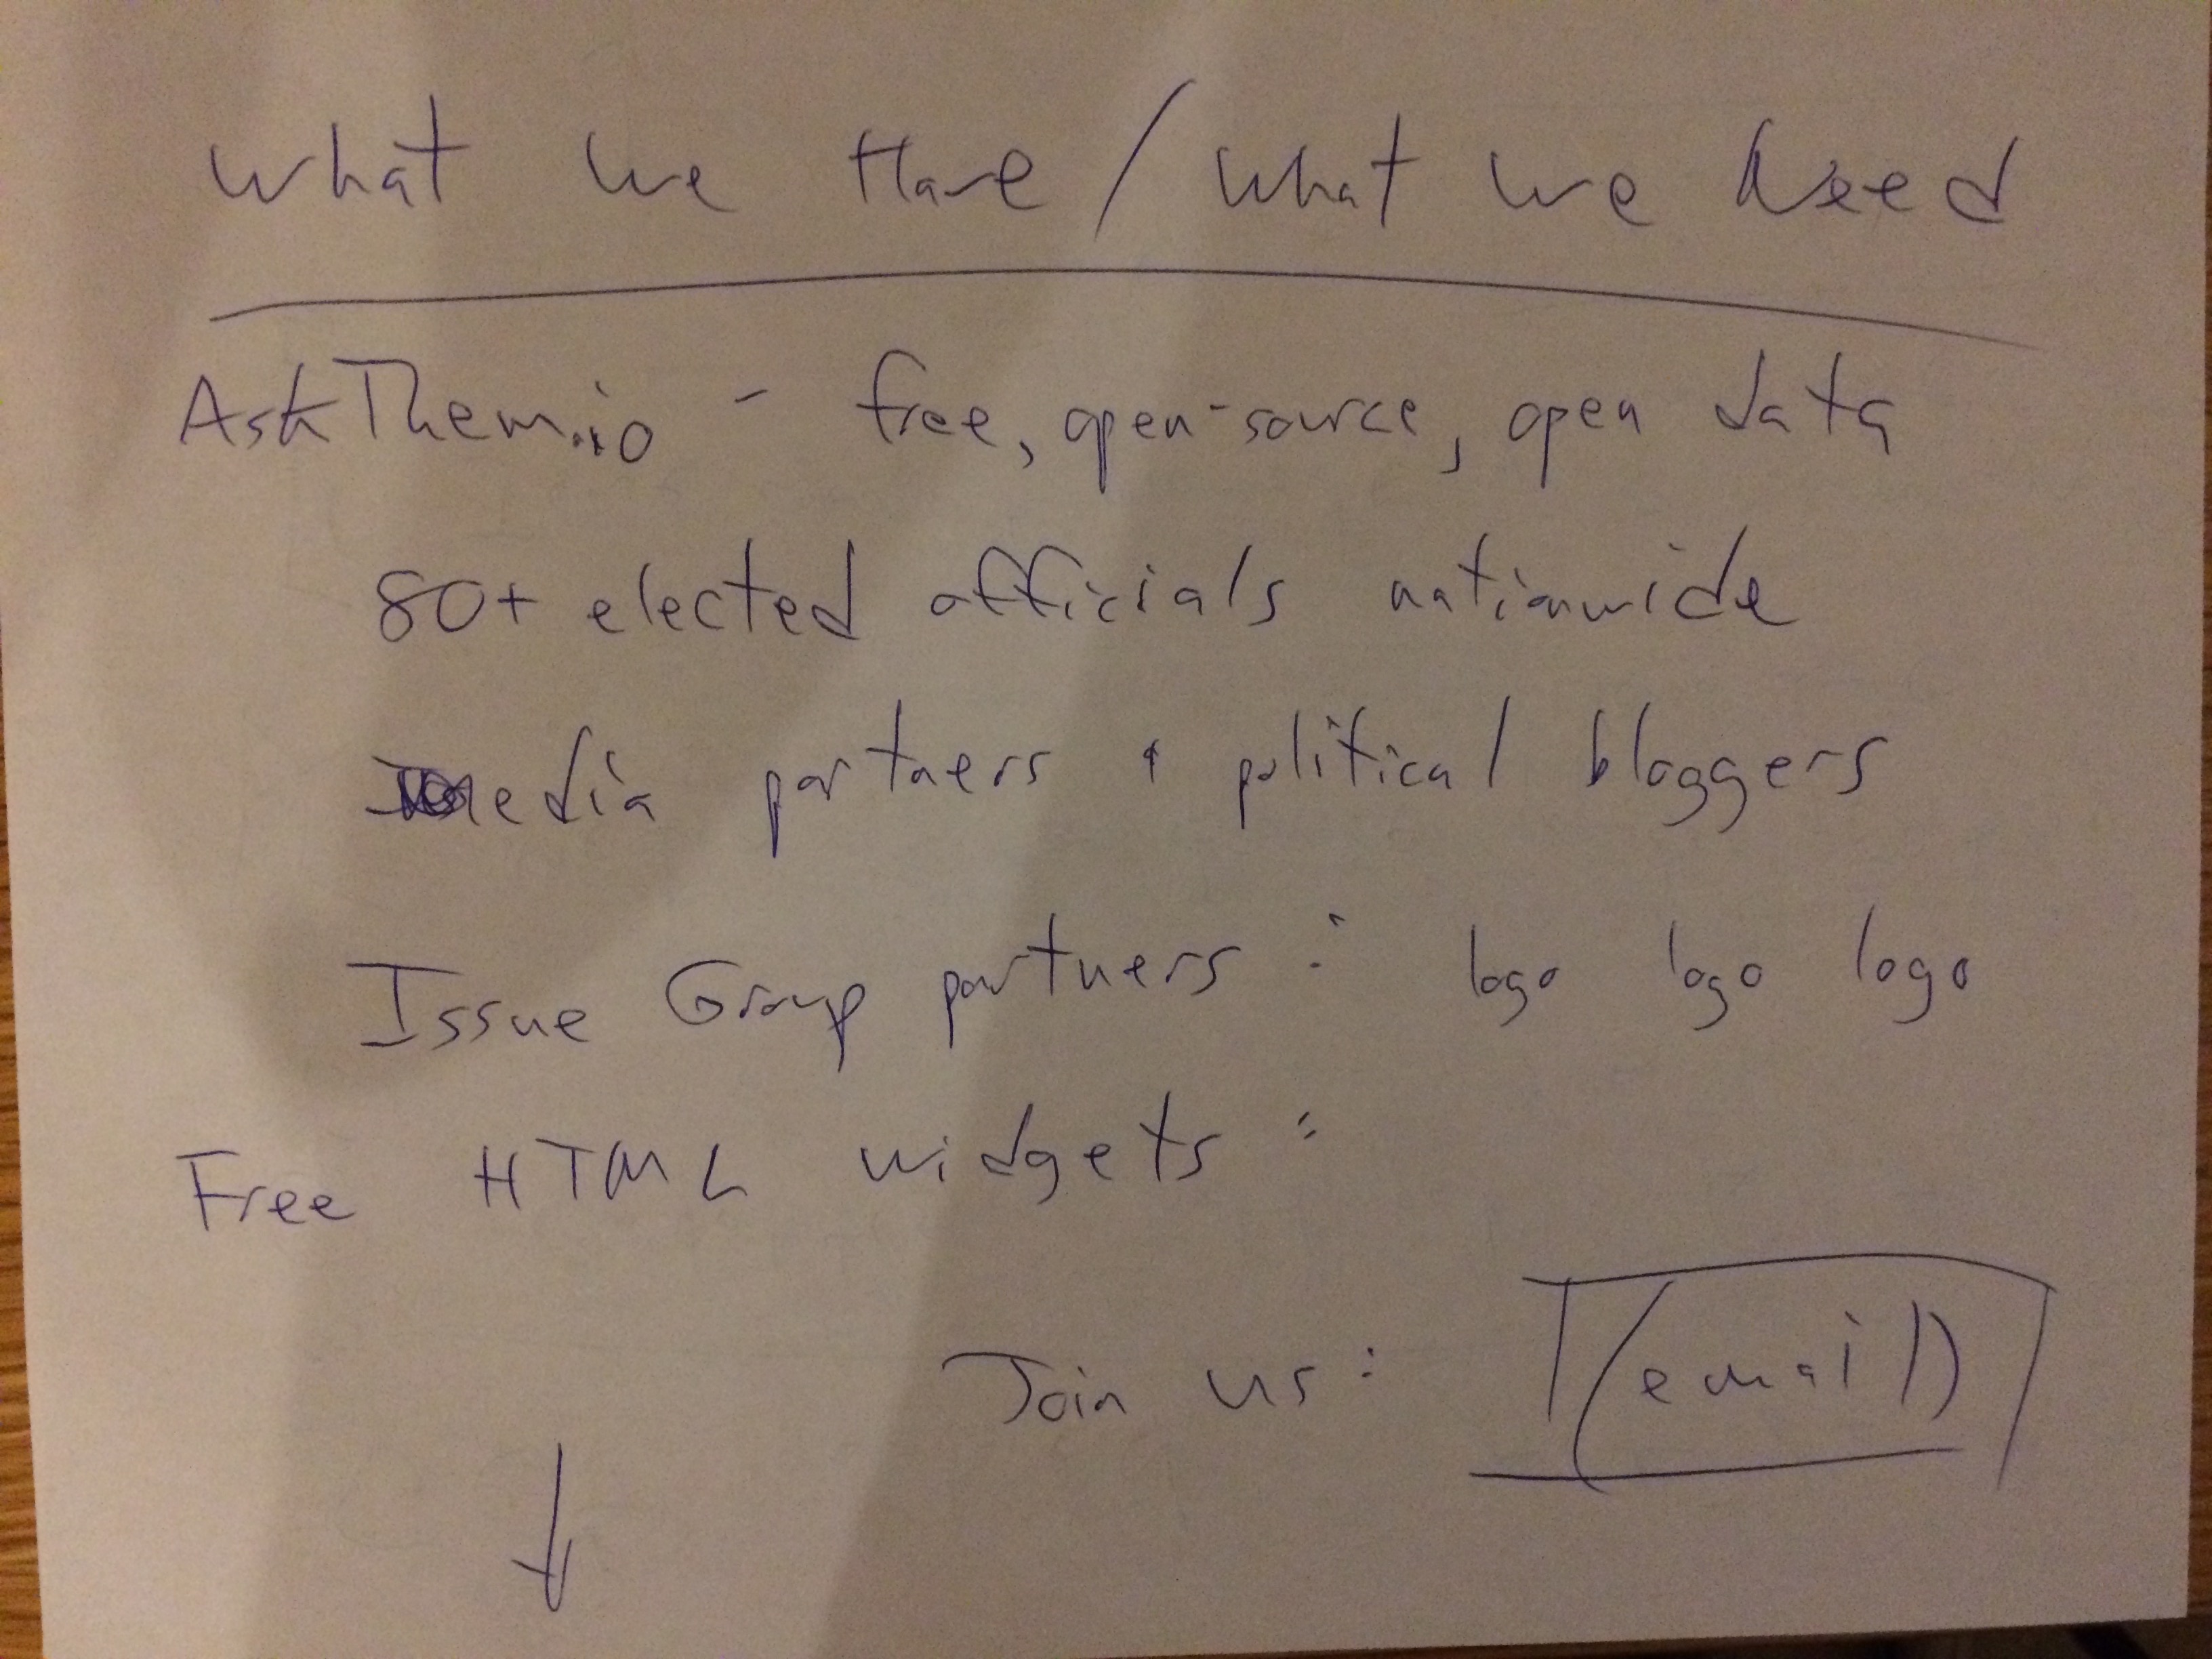 What we Have / What we Need
AskThem.io - free, open-source, open data
80+ elected officials nationwide
media partners + political bloggers
Issue Group partners: logo logo logo
Free HTML widgets:
Join us: (email)